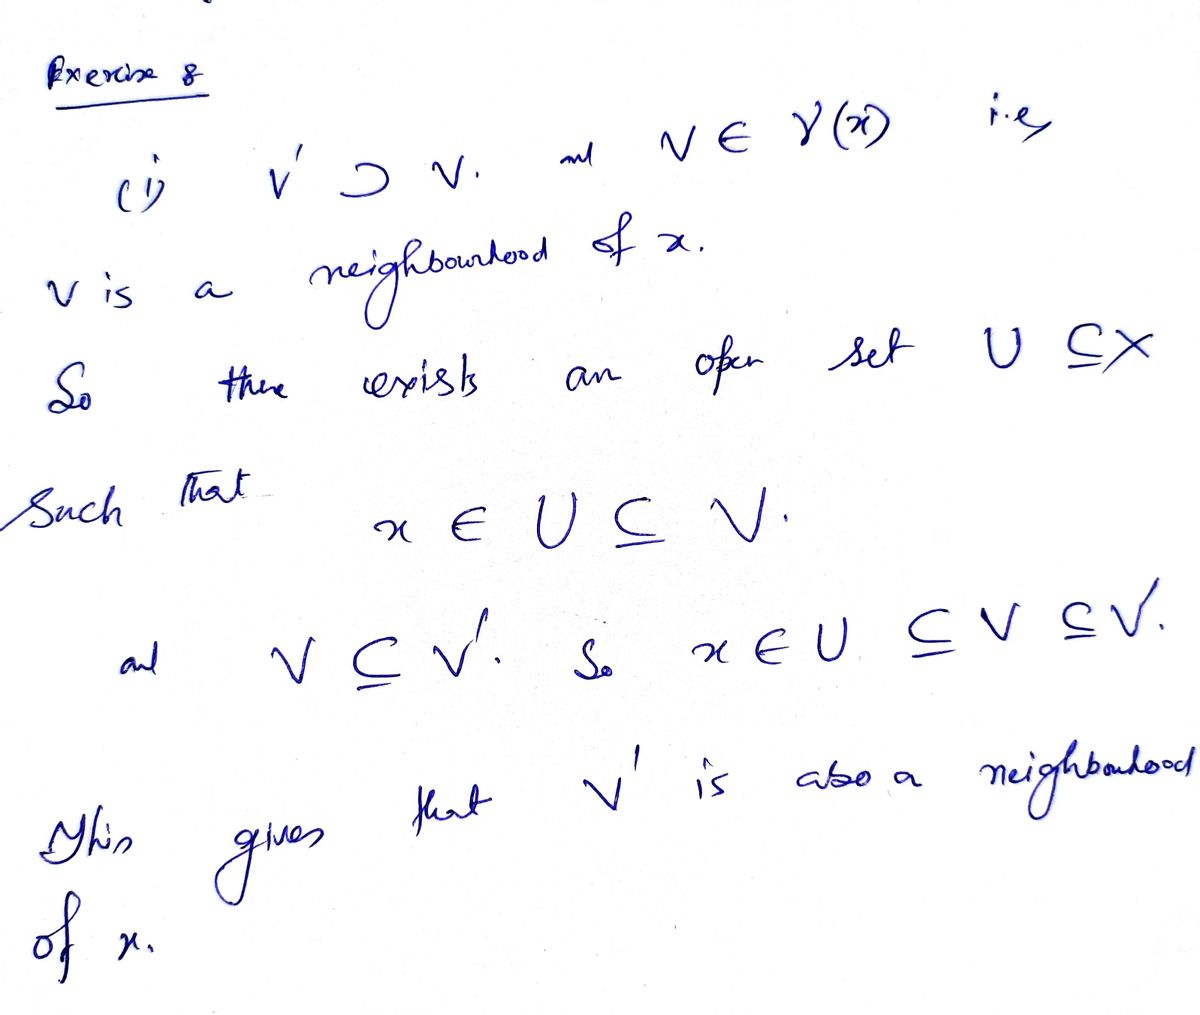 Exercise 8
(i) V' ⊃ V. and V ∈ 𝒱(x) i.e,
V is a neighbourhood of x.
So there exists an open set U ⊆ X
Such that
x ∈ U ⊆ V.
and V ⊆ V'. So x ∈ U ⊆ V ⊆ V'.
This gives that V' is also a neighbourhood
of x.